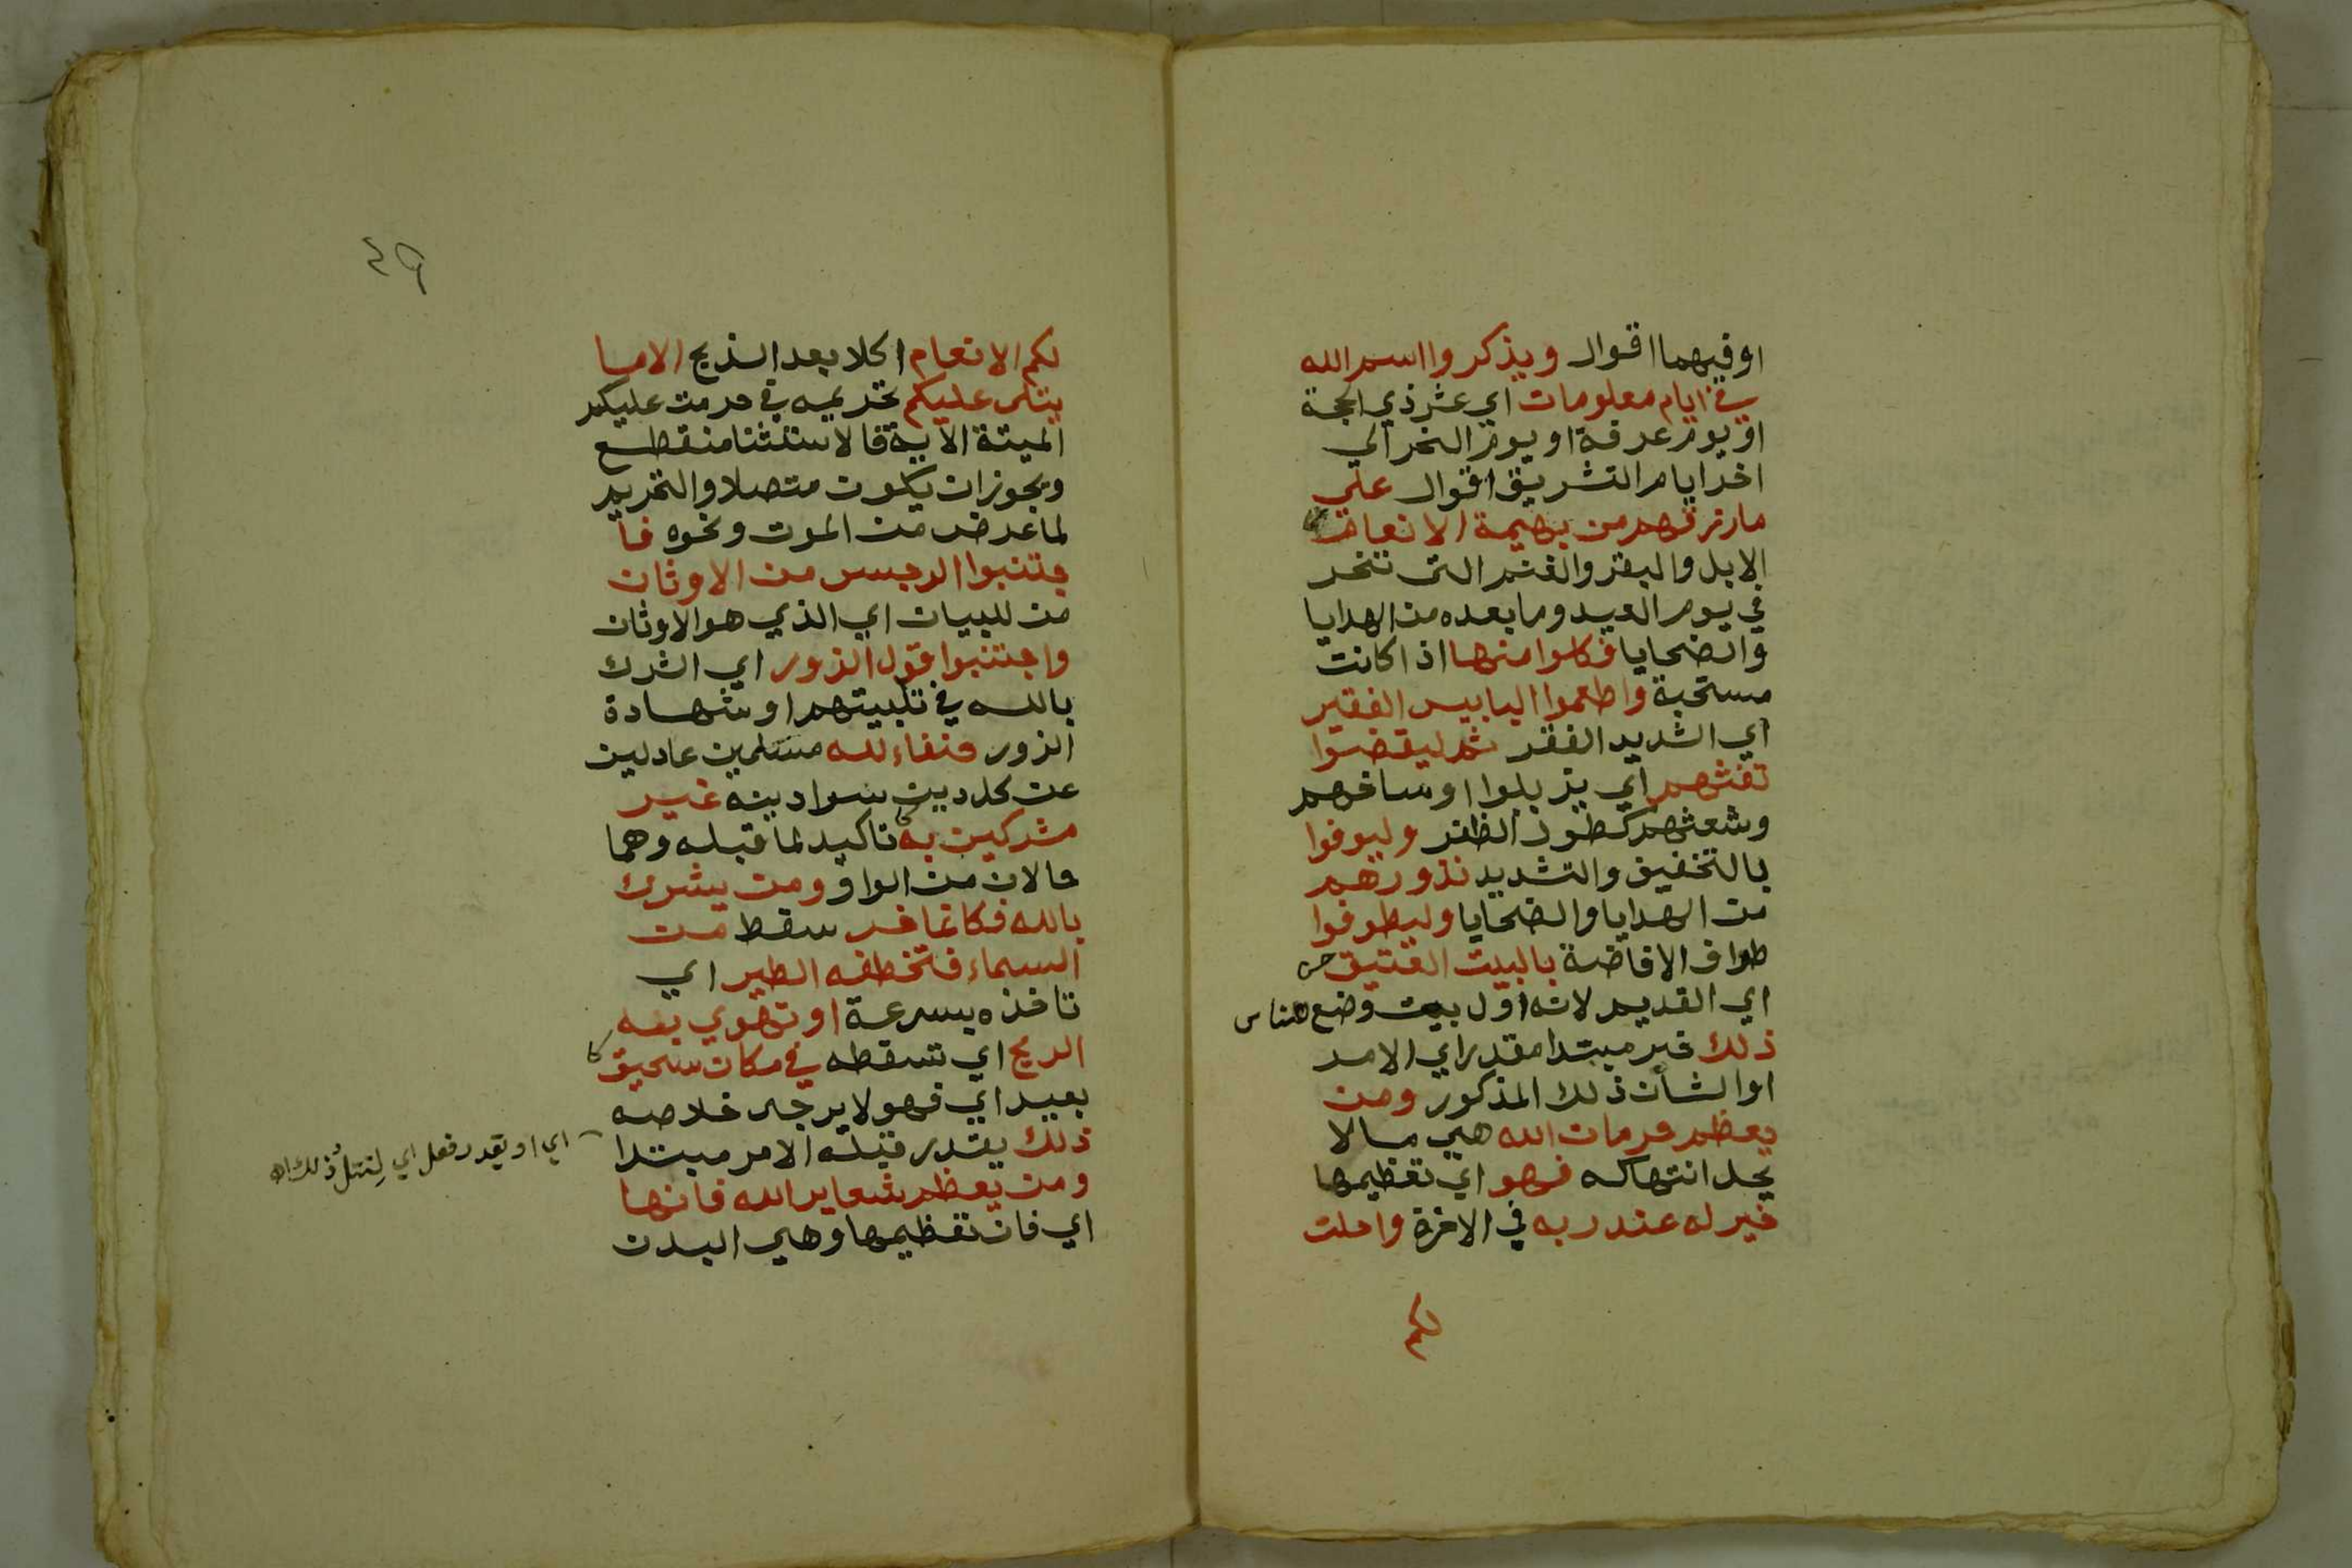 او فيهما اقوال ويذكروا اسم الله
في ايام معلومات اي عشر ذي الحجة
او يوم عرفة او يوم النحر الي
اخر ايام التشريق اقوال علي
ما رزقهم من بهيمة الانعام
الابل والبقر والغنم التي تنحر
في يوم العيد وما بعده من الهدايا
والضحايا فكلوا منها اذا كانت
مستحبة واطعموا البايس الفقير
اي الشديد الفقر ثم ليقضوا
تفثهم اي يزيلوا اوساخهم
وشعثهم كطول الظفر وليوفوا
بالتخفيف والتشديد نذورهم
من الهدايا والضحايا وليطوفوا
طواف الافاضة بالبيت العتيق
اي القديم لانه اول بيت وضع للناس
ذلك خبر مبتدا مقدر اي الامر
او الشأن ذلك المذكور ومن
يعظم حرمات الله هي ما لا
يحل انتهاكه فهو اي تعظيمها
خير له عند ربه في الاخرة واحلت
لكم
٤٩
لكم الانعام اكلا بعد الذبح الا ما
يتلى عليكم تحريمه في حرمت عليكم
الميتة الاية فالاستثنا منقطع
ويجوز ان يكون متصلا والتحريم
لما عرض من الموت ونحوه فا
جتنبوا الرجس من الاوثان
من للبيان اي الذي هو الاوثان
واجتنبوا قول الزور اي الشرك
بالله في تلبيتهم او شهادة
الزور حنفاء لله مسلمين عادلين
عن كل دين سوا دينه غير
مشركين به تاكيد لما قبله وهما
حالان من الواو ومن يشرك
بالله فكانما خر سقط من
السماء فتخطفه الطير اي
تاخذه بسرعة او تهوي به
الريح اي تسقطه في مكان سحيق
بعيد اي فهو لا يرجى خلاصه
ذلك يقدر قبله الامر مبتدا
اي او يقدر فعل اي لنتل ذلك اه
ومن يعظم شعاير الله فانها
اي فان تعظيمها وهي البدن